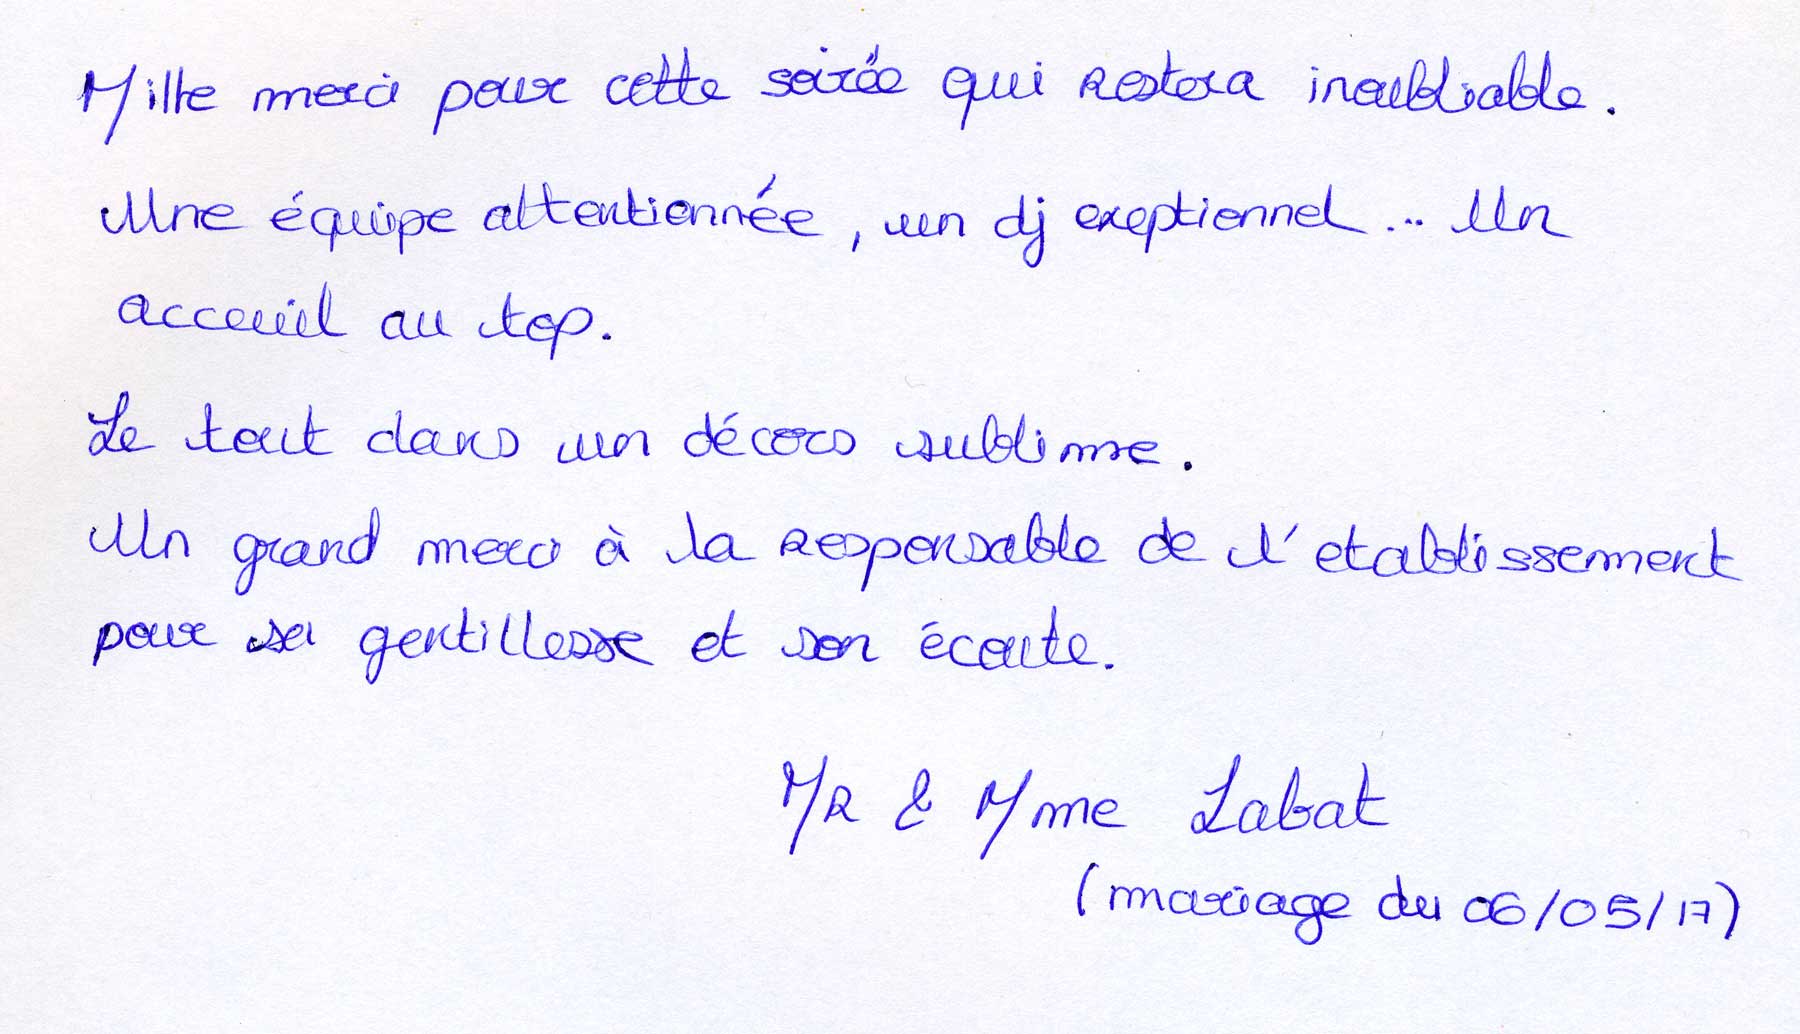 Mille merci pour cette soirée qui restera inoubliable.
Une équipe attentionnée, un dj exeptionnel... Un
acceuil au top.
Le tout dans un décors sublime.
Un grand merci à la responsable de l'etablissement
pour sa gentillesse et son écoute.
Mr & Mme Labat
(mariage du 06/05/17)